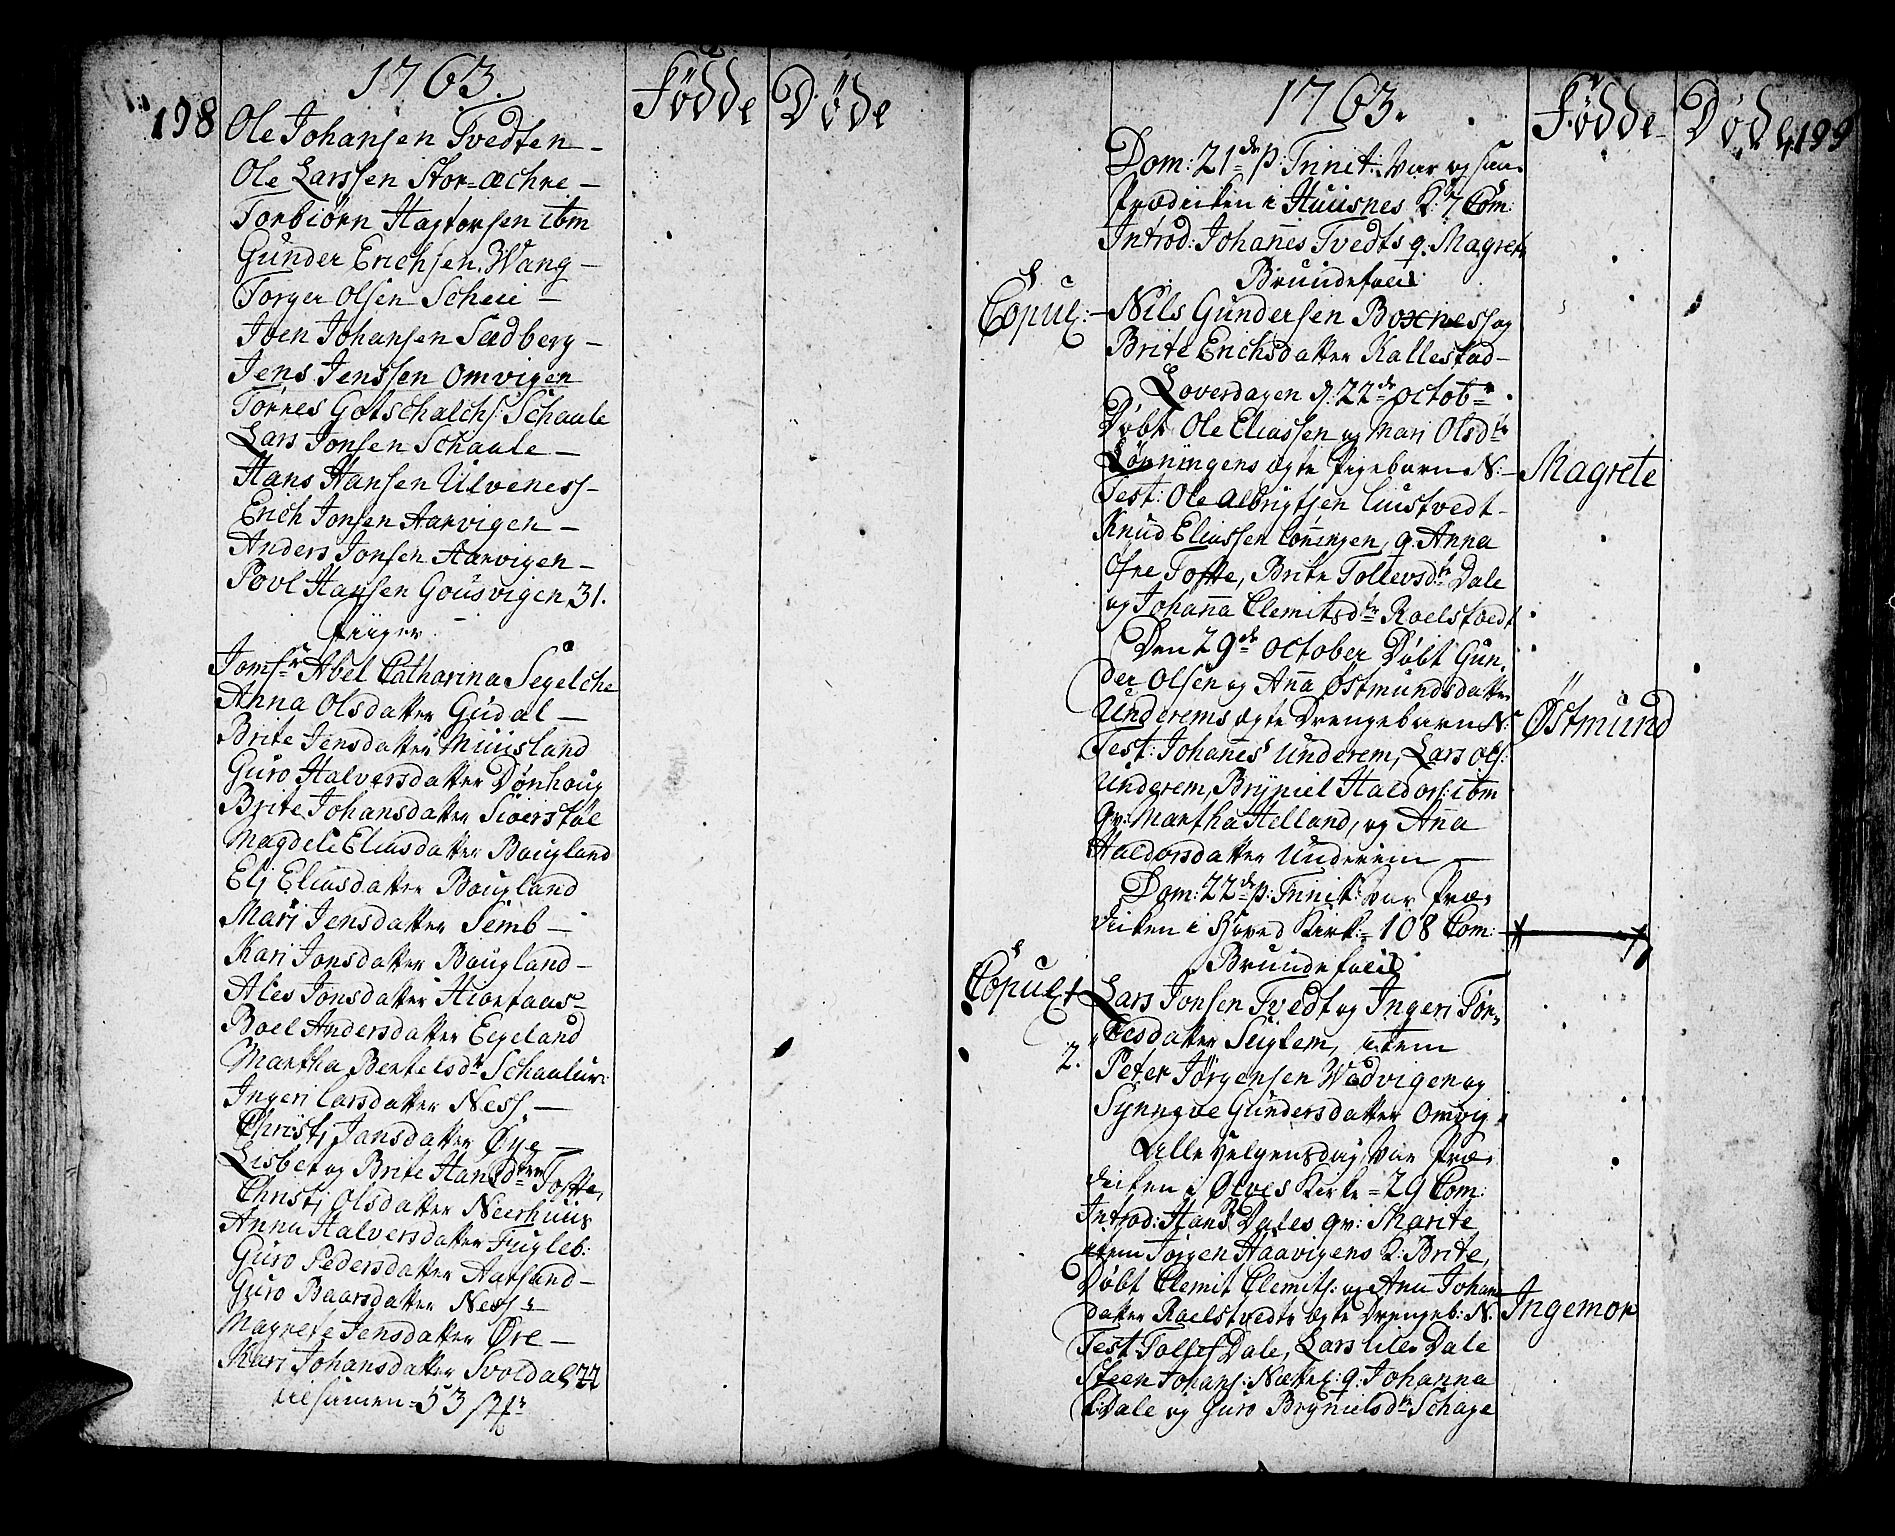 198
1763.
Fødde Døde
Ole Johansen Tvedten -
Ole Larssen Stor=Æchre -
Torbiørn Hagtorsen ibm
Gunder Erichsen Wang -
Torger Olsen Scheie -
Joen Johansen Sædberg -
Jens Jenssen Omvigen
Tørres Gotschalchs: Schaale
Lars Jonsen Schaale -
Hans Hansen Ulveness -
Erich Jonsen Aarvigen -
Anders Jonsen Aarvigen -
Povl Hansen Gousvigen 31.
Piiger.
Jomfr Abel Catharina Segelche
Anna Olsdatter Gudal -
Brite Jensdatter Muusland
Guro Halversdatter Dønhoug
Brite Johansdatter Siverstøl
Magdele Eliasdatter Bougland
Eli Eliasdatter Bougland
Mari Jensdatter Semb -
Kari Jonsdatter Bougland -
Ales Jonsdatter Hiortaas -
Boel Andersdatter Eigeland
Martha Bertelsdtr Schaalur:
Ingeri Larsdatter Ness. -
Christi Jansdatter Øye -
Lisbet og Brite Hansdøttre Tofte,
Christi Olsdatter Neerhuus
Anna Halversdatter Fugleb:
Guro Pedersdatter Aarsand -
Guro Baarsdatter Ness -
Magrete Jensdatter Øre -
Kari Johansdatter Svoldal 22
tilsamen = 53 Stkr
1763.
Fødde Døde 199
Dom: 21de p: Trinit: var og faa
Prædiken i Huusnes K: 7 Com:
Introd: Johanes Tvedts q. Magrete
Brudefolk
Copul: - Nils Gundersen Boxness og
Brite Erichsdatter Kallestad -
Løverdagen d: 22de Octobr
Døbt Ole Eliassen og Mari Olsdtr
Lønningens ægte Pigebarn N: - Magrete
Test: Ole Albrigtsen Luustvedt -
Knud Eliassen Løningen, q. Anna
Øfre Tofte, Brite Tollevsdtr Dale
og Johanna Clemitsdtr Roelstvedt
Den 29de October Døbt Gun-
der Olsen og Ana Østmundsdatter
Underems ægte Drengebarn N: Østmund
Test: Johanes Underem, Lars Ols:
Underem, Brÿniel Haldors: ibm
Qv: Martha Helland, og Ana
Haldorsdatter Underem -
Dom: 22de p: Trinit: var Præ-
diken i Hoved Kirk = 108 Com:
Brudefolk
Copul: 1 Lars Jonsen Tvedt og Ingeri Tør-
resdatter Seiglem, item
2. Peter Jørgensen Wadvigen og
Synneve Gundersdatter Omvig
Alle Helgensdag var Præ-
diken i Ølves Kirke = 29 Com:
Introd: Hans Dales qv: Marite
item Jørgen Haavigens K: Brite,
Døbt Clemit Clemits: og Ana Johans
datter Raelstvedts ægte Drengeb: N: Ingemor
Test Tollef Dale, Lars lille Dale
Steen Johans: q. Johanna
Dale og Guro Brynielsdtr Schage